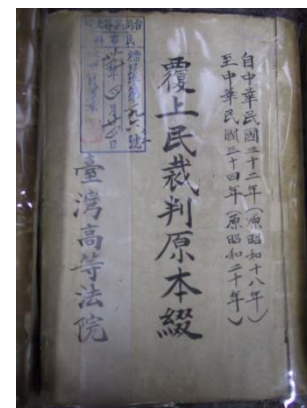 自中華民國三十二年（原昭和十八年）
至中華民國三十四年（原昭和二十年）
覆上民裁判原本綴
臺灣高等法院